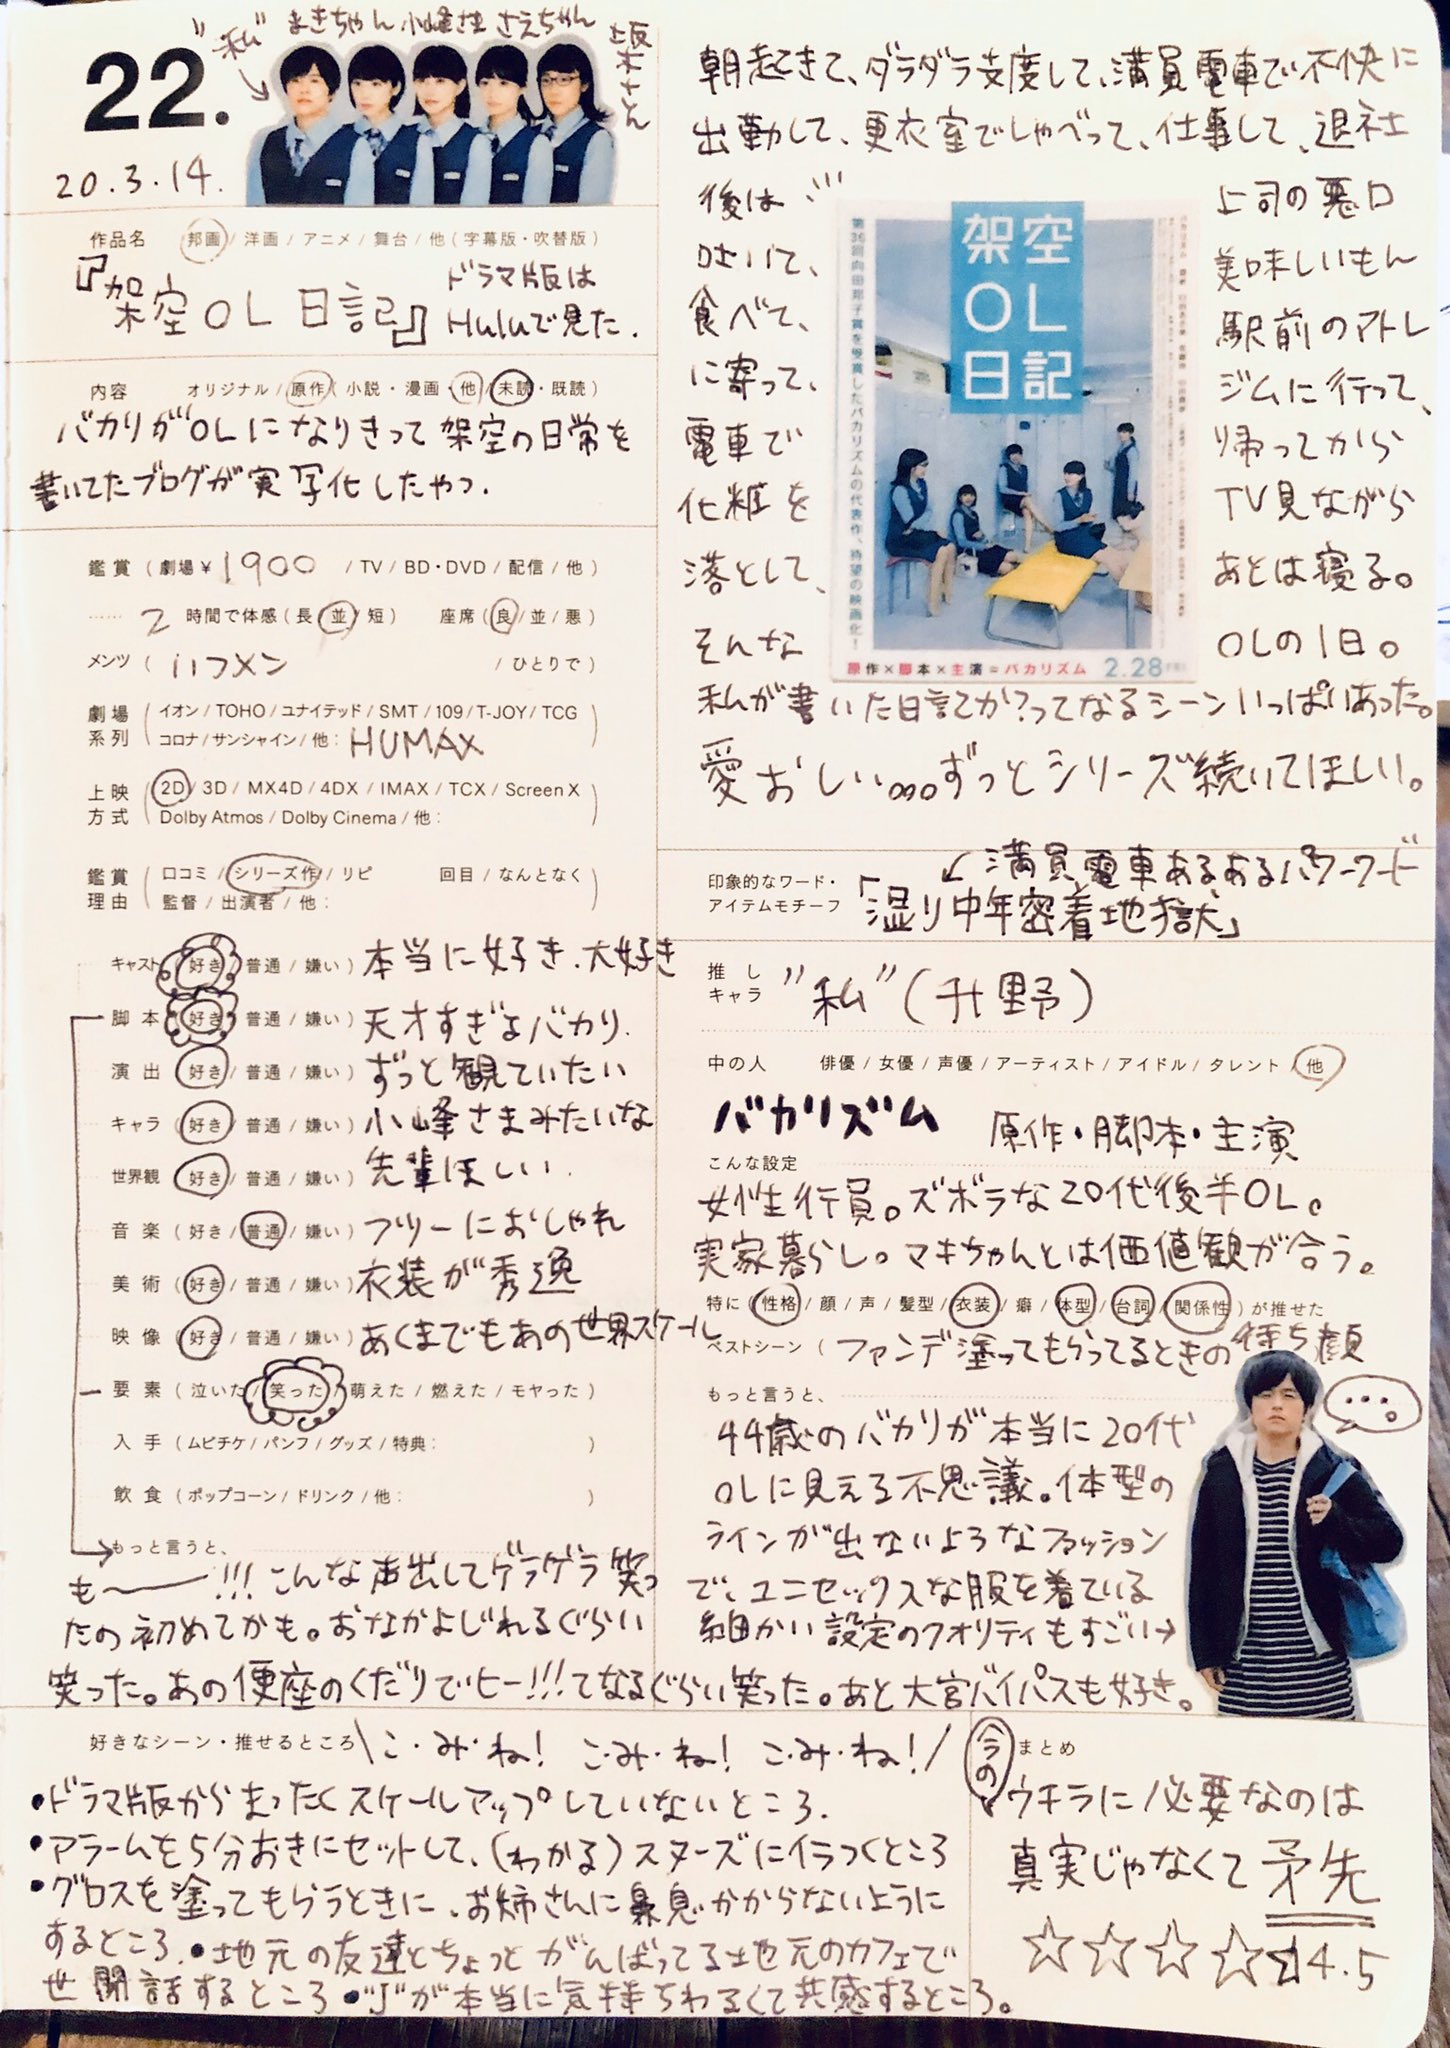 22.
20.3.14.
"私"
まきちゃん 小峰さま さえちゃん
坂木さん
作品名 邦画 / 洋画 / アニメ / 舞台 / 他 (字幕版・吹替版)
『架空OL日記』
ドラマ版は
Huluで見た.
内容 オリジナル / 原作 (小説・漫画・他 / 未読・既読)
バカリがOLになりきって架空の日常を
書いてたブログが実写化したやつ.
鑑賞 (劇場¥1900 / TV / BD・DVD / 配信 / 他)
…… 2 時間で体感 (長 / 並 / 短) 座席 (良 / 並 / 悪)
メンツ (いつメン / ひとりで)
劇場系列 イオン / TOHO / ユナイテッド / SMT / 109 / T-JOY / TCG
コロナ / サンシャイン / 他: HUMAX
上映方式 2D / 3D / MX4D / 4DX / IMAX / TCX / Screen X
Dolby Atmos / Dolby Cinema / 他:
鑑賞理由 口コミ / シリーズ作 / リピ 回目 / なんとなく
監督 / 出演者 / 他:
キャスト (好き / 普通 / 嫌い) 本当に好き、大好き
脚本 (好き / 普通 / 嫌い) 天才すぎよバカリ.
演出 (好き / 普通 / 嫌い) ずっと観ていたい
キャラ (好き / 普通 / 嫌い) 小峰さまみたいな
世界観 (好き / 普通 / 嫌い) 先輩ほしい.
音楽 (好き / 普通 / 嫌い) フツーにおしゃれ
美術 (好き / 普通 / 嫌い) 衣装が秀逸
映像 (好き / 普通 / 嫌い) あくまでもあの世界スケール
要素 (泣いた / 笑った / 萌えた / 燃えた / モヤった)
入手 (ムビチケ / パンフ / グッズ / 特典: )
飲食 (ポップコーン / ドリンク / 他: )
もっと言うと、
も〜!!! こんな声出してゲラゲラ笑っ
たの初めてかも。おなかよじれるぐらい
笑った。あの便座のくだりでヒー!!!てなるぐらい笑った。あと大宮バイパスも好き。
朝起きて、ダラダラ支度して、満員電車で不快に
出勤して、更衣室でしゃべって、仕事して、退社
後は… 上司の悪口
吐いて、 美味しいもん
食べて、 駅前のアトレ
に寄って、 ジムに行って、
電車で 帰ってから
化粧を TV見ながら
落として、 あとは寝る。
そんな OLの1日。
架空
OL
日記
第36回向田邦子賞を受賞したバカリズムの代表作、待望の映画化!
原作×脚本×主演=バカリズム 2.28
私が書いた日記か?ってなるシーンいっぱいあった。
愛おしい。。。ずっとシリーズ続いてほしい。
印象的なワード・アイテムモチーフ
満員電車あるあるパワーワード
「湿り中年密着地獄」
推しキャラ "私"(升野)
中の人 俳優 / 女優 / 声優 / アーティスト / アイドル / タレント / 他
バカリズム 原作・脚本・主演
こんな設定
女性行員。ズボラな20代後半OL。
実家暮らし。マキちゃんとは価値観が合う。
特に (性格 / 顔 / 声 / 髪型 / 衣装 / 癖 / 体型 / 台詞 / 関係性) が推せた
ベストシーン (ファンデ塗ってもらってるときの待ち顔
もっと言うと、
44歳のバカリが本当に20代
OLに見える不思議。体型の
ラインが出ないようなファッション
で、ユニセックスな服を着ている
細かい設定のクオリティもすごい→
…。
好きなシーン・推せるところ \こ・み・ね! こ・み・ね! こ・み・ね!/
・ドラマ版からまったくスケールアップしていないところ.
・アラームを5分おきにセットして、(わかる) スヌーズにイラつくところ
・グロスを塗ってもらうときに、お姉さんに鼻息かからないように
するところ. ・地元の友達とちょっとがんばってる地元のカフェで
世間話するところ ・"J"が本当に気持ちわるくて共感するところ。
まとめ
今の
ウチラに必要なのは
真実じゃなくて矛先
☆☆☆☆ 4.5